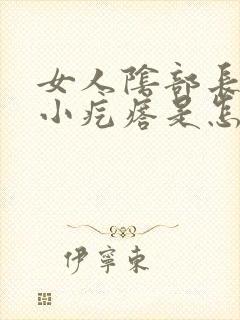 女人陰部長
小疙瘩是怎
伊寧東